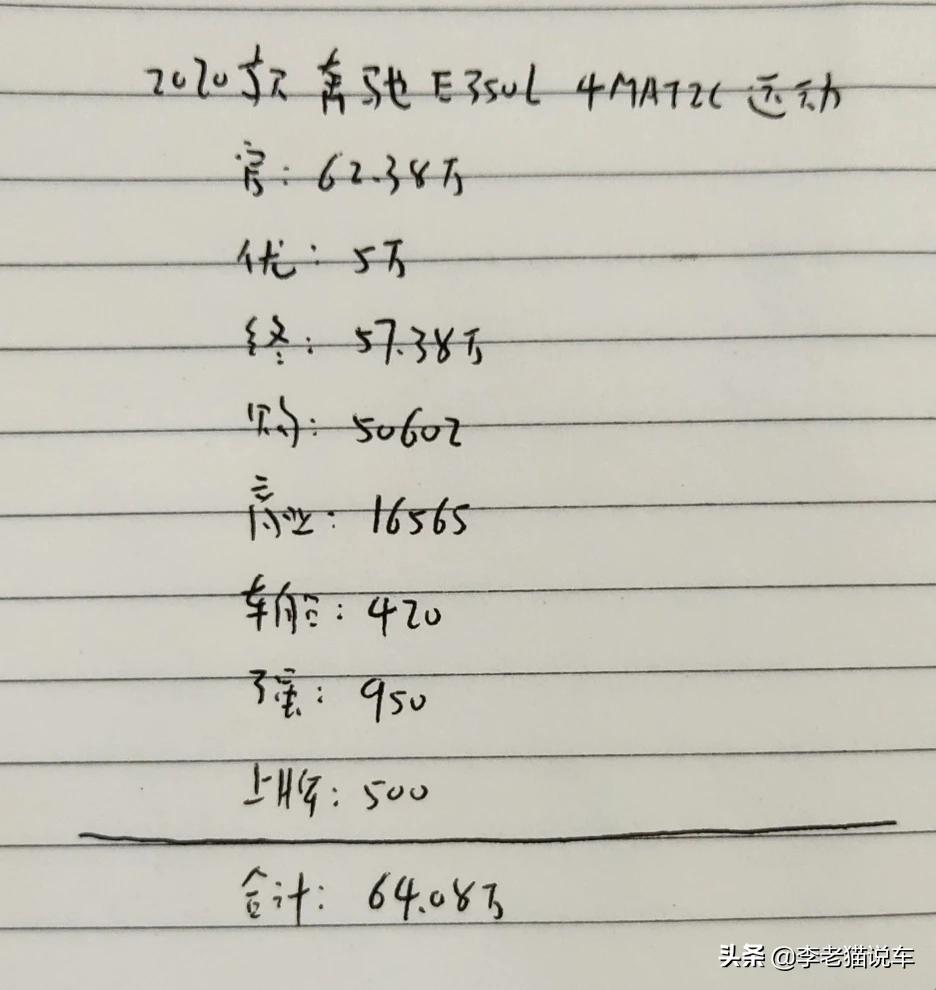 2020款 奔驰 E350L 4MATIC 运动
官：62.38万
优：5万
终：57.38万
购：50602
商业：16565
车船：420
强：950
上牌：500
合计：64.08万
头条 @李老猫说车